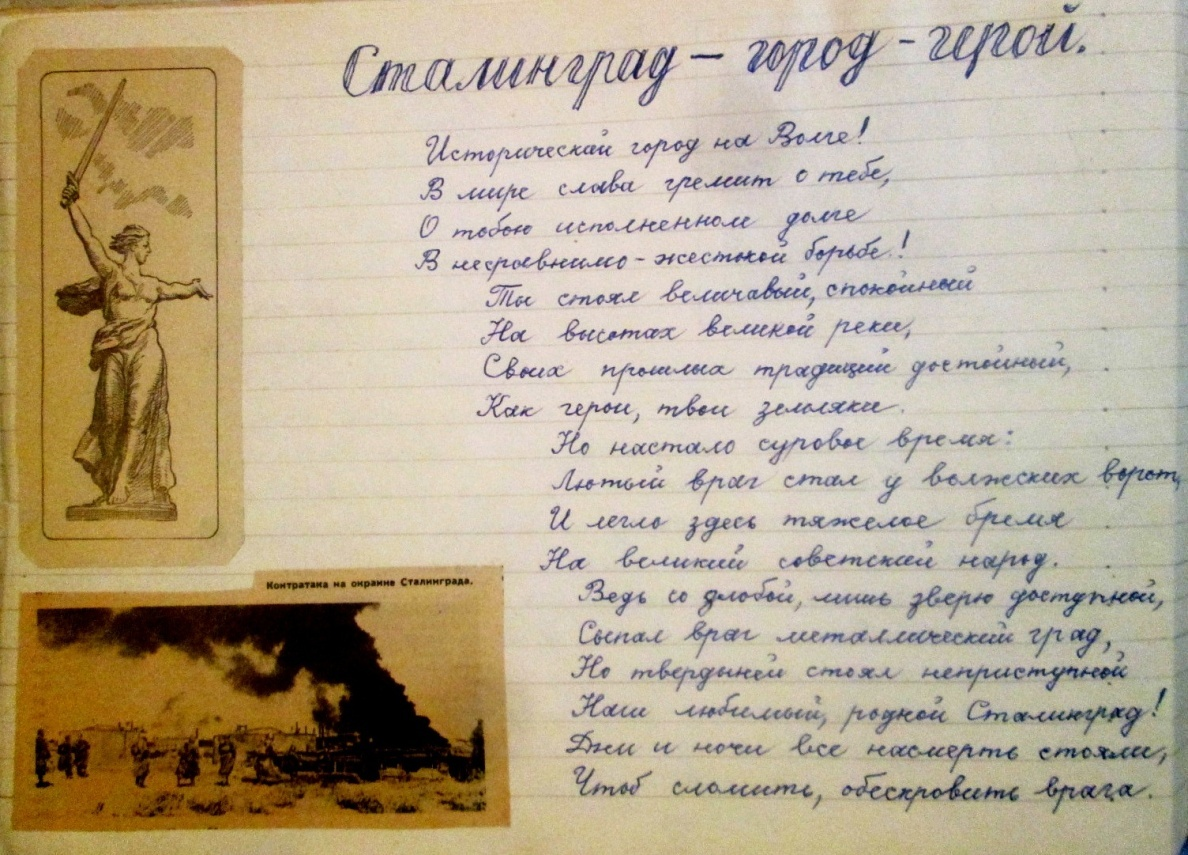 Сталинград – город - герой.
Исторический город на Волге!
В мире слава гремит о тебе,
О тобою исполненном долге
В несравнимо-жестокой борьбе!
Ты стоял величавый, спокойный
На высотах великой реки,
Своих прошлых традиций достойный,
Как герои, твои земляки.
Но настало суровое время:
Лютый враг стал у волжских ворот,
И легло здесь тяжелое бремя
На великий советский народ.
Ведь со злобой, лишь зверю доступной,
Сыпал враг металлический град,
Но твердыней стоял неприступной
Наш любимый, родной Сталинград!
Дни и ночи все насмерть стояли,
Чтоб сломить, обескровить врага.
Контратака на окраине Сталинграда.